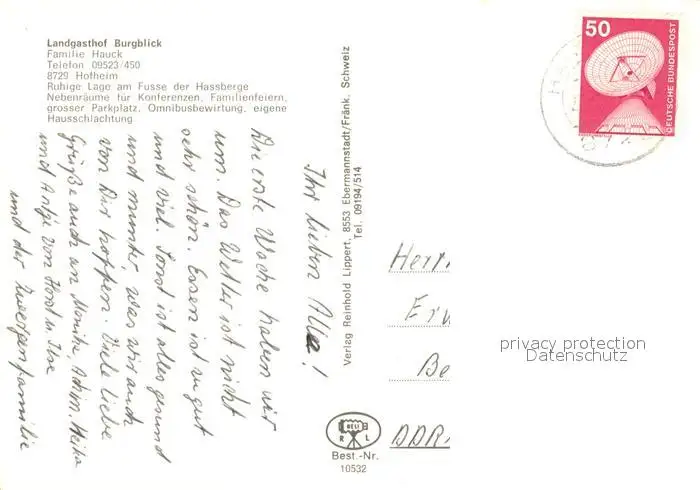 Landgasthof Burgblick
Familie Hauck
Telefon 09523/450
8729 Hofheim
Ruhige Lage am Fusse der Hassberge
Nebenräume für Konferenzen, Familienfeiern,
grosser Parkplatz, Omnibusbewirtung, eigene
Hausschlachtung
Ihr lieben Alle!
Die erste Woche haben wir
um. Das Wetter ist nicht
sehr schön. Essen ist zu gut
und viel. Sonst ist alles gesund
und munter, was wir auch
von Dir hoffen. Viele liebe
Grüße auch an Monika, Achim, Heiko
und Antje von Horst u. Ilse
und der Zwergenfamilie
Verlag Reinhold Lippert, 8553 Ebermannstadt/Fränk. Schweiz
Tel. 09194/514
RELI
R L
Best.-Nr.
10532
50
DEUTSCHE BUNDESPOST
Herrn
Erw
Be
DDR
privacy protection
Datenschutz